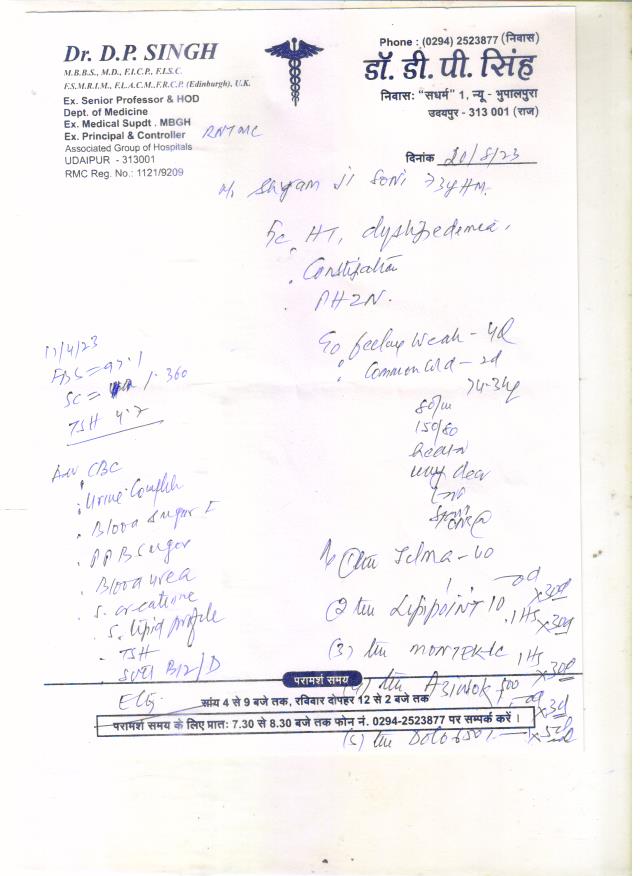 Dr. D.P. SINGH
M.B.B.S., M.D., F.I.C.P., F.I.S.C.
F.S.M.R.I.M., F.I.A.C.M., F.R.C.P. (Edinburgh), U.K.
Ex. Senior Professor & HOD
Dept. of Medicine
Ex. Medical Supdt . MBGH
Ex. Principal & Controller RNT MC
Associated Group of Hospitals
UDAIPUR - 313001
RMC Reg. No.: 1121/9209
Phone : (0294) 2523877 (निवास)
डॉ. डी. पी. सिंह
निवासः "सधर्म" 1, न्यू - भुपालपुरा
उदयपुर - 313 001 (राज)
दिनांक 20/8/23
Shyam Ji Soni
HT, dyslipedemia,
Constipation
feeling weak - 4d
Common cold - 2d
74.3kg
80/m
150/80
17/4/23
FBS = 97
TSH 4.7
Adv CBC
Urine Complete
Blood Sugar F
PP B Sugar
Blood urea
S. creatinine
S. lipid profile
TSH
B12/D
ECG
Telma - 40
(2) LIPIPOINT 10
1 HS x 30d
(3) MONTEK LC 1 HS
x 30d
(5) DOLO 650
परामर्श समय
सांय 4 से 9 बजे तक, रविवार दोपहर 12 से 2 बजे तक
परामर्श समय के लिए प्रातः 7.30 से 8.30 बजे तक फोन नं. 0294-2523877 पर सम्पर्क करें ।